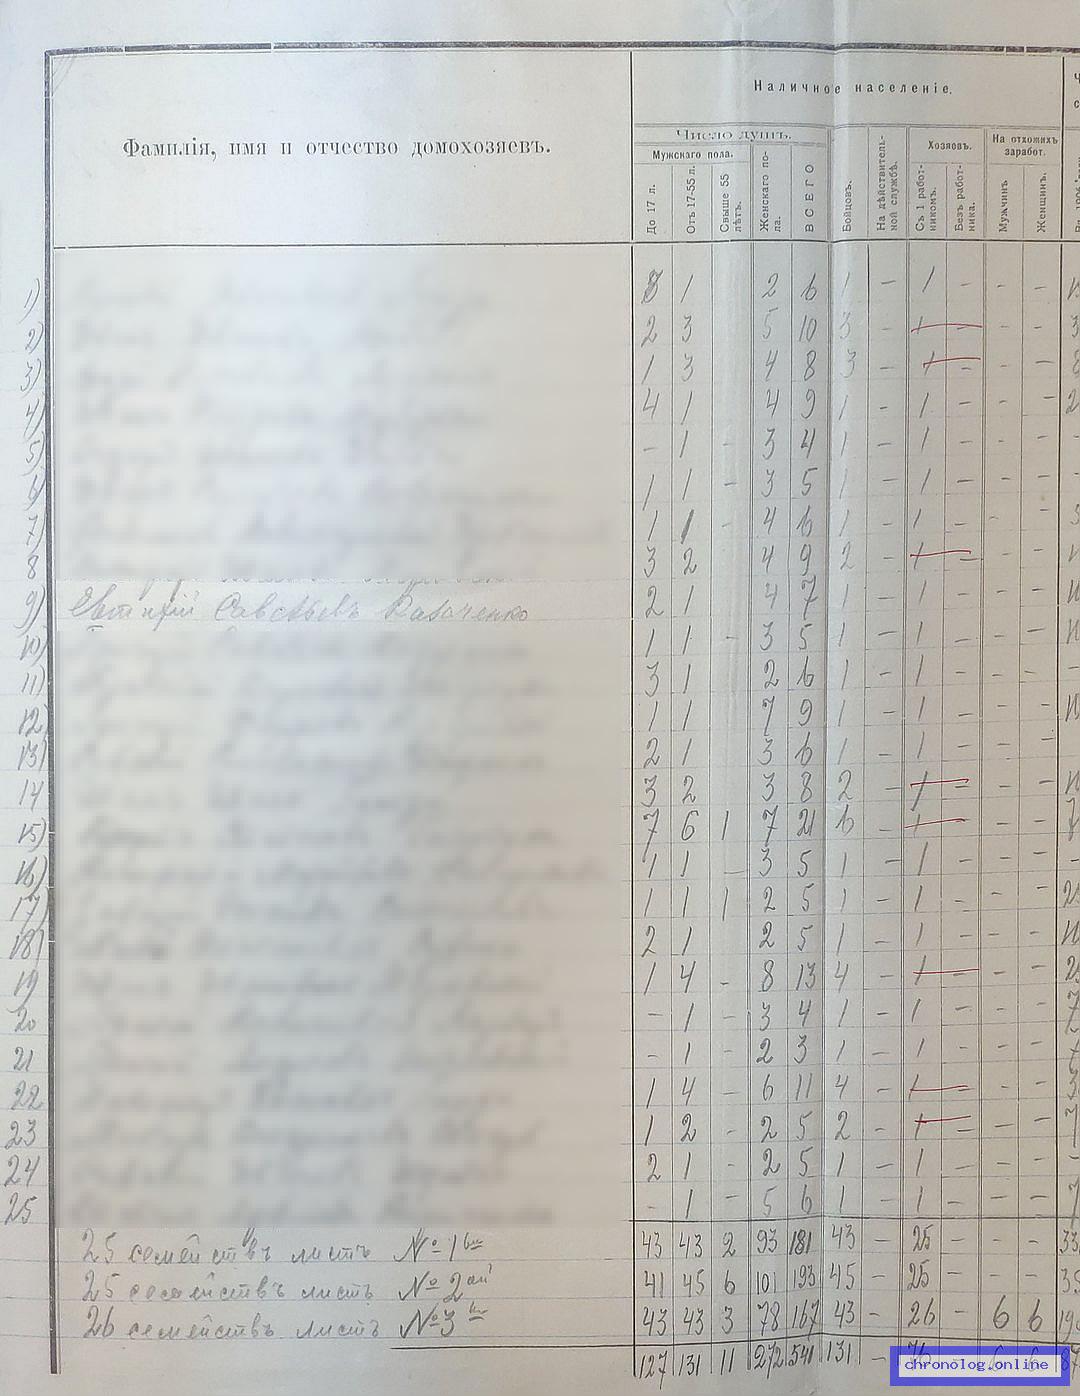 Наличное населеніе.
Фамилія, имя и отчество домохозяевъ.
Число душъ.
Мужскаго пола.
До 17 л.
Отъ 17-55 л.
Свыше 55 лѣтъ.
Женскаго пола.
ВСЕГО
Бойцовъ.
На дѣйствительной службѣ.
Хозяевъ.
Съ 1 работникомъ.
Безъ работника.
На отхожихъ заработ.
Мужчинъ
Женщинъ.
1) 3 1 2 6 1 - 1 - - -
2) 2 3 5 10 3 - 1 - - -
3) 1 3 4 8 3 - 1 - - -
4) 4 1 4 9 1 - 1 - - -
5) - 1 - 3 4 1 - 1 - - -
6) 1 1 - 3 5 1 - 1 - - -
7) 1 1 - 4 6 1 - 1 - - -
8 3 2 4 9 2 - 1 - - -
9) Савельевъ Казаченко 2 1 4 7 1 - 1 - - -
10) 1 1 - 3 5 1 - 1 - - -
11) 3 1 2 6 1 - 1 - - -
12) 1 1 7 9 1 - 1 - - -
13) 2 1 3 6 1 - 1 - - -
14 3 2 3 8 2 - 1 - - -
15) 7 6 1 7 21 6 - 1 - - -
16) 1 1 - 3 5 1 - 1 - - -
17) 1 1 1 2 5 1 - 1 - - -
18) 2 1 2 5 1 - 1 - - -
19 1 4 - 8 13 4 - 1 - - -
20 - 1 - 3 4 1 - 1 - - -
21 - 1 - 2 3 1 - 1 - - -
22 1 4 - 6 11 4 - 1 - - -
23 1 2 - 2 5 2 - 1 - - -
24 2 1 - 2 5 1 - 1 - - -
25 - 1 - 5 6 1 - 1 - - -
25 семействъ листъ № 1 43 43 2 93 181 43 - 25 - - -
25 семействъ листъ № 2ой 41 45 6 101 193 45 - 25 - - -
26 семействъ листъ № 3 43 43 3 78 167 43 - 26 - 6 6
127 131 11 272 541 131 - 76 - 6 6
chronolog.online